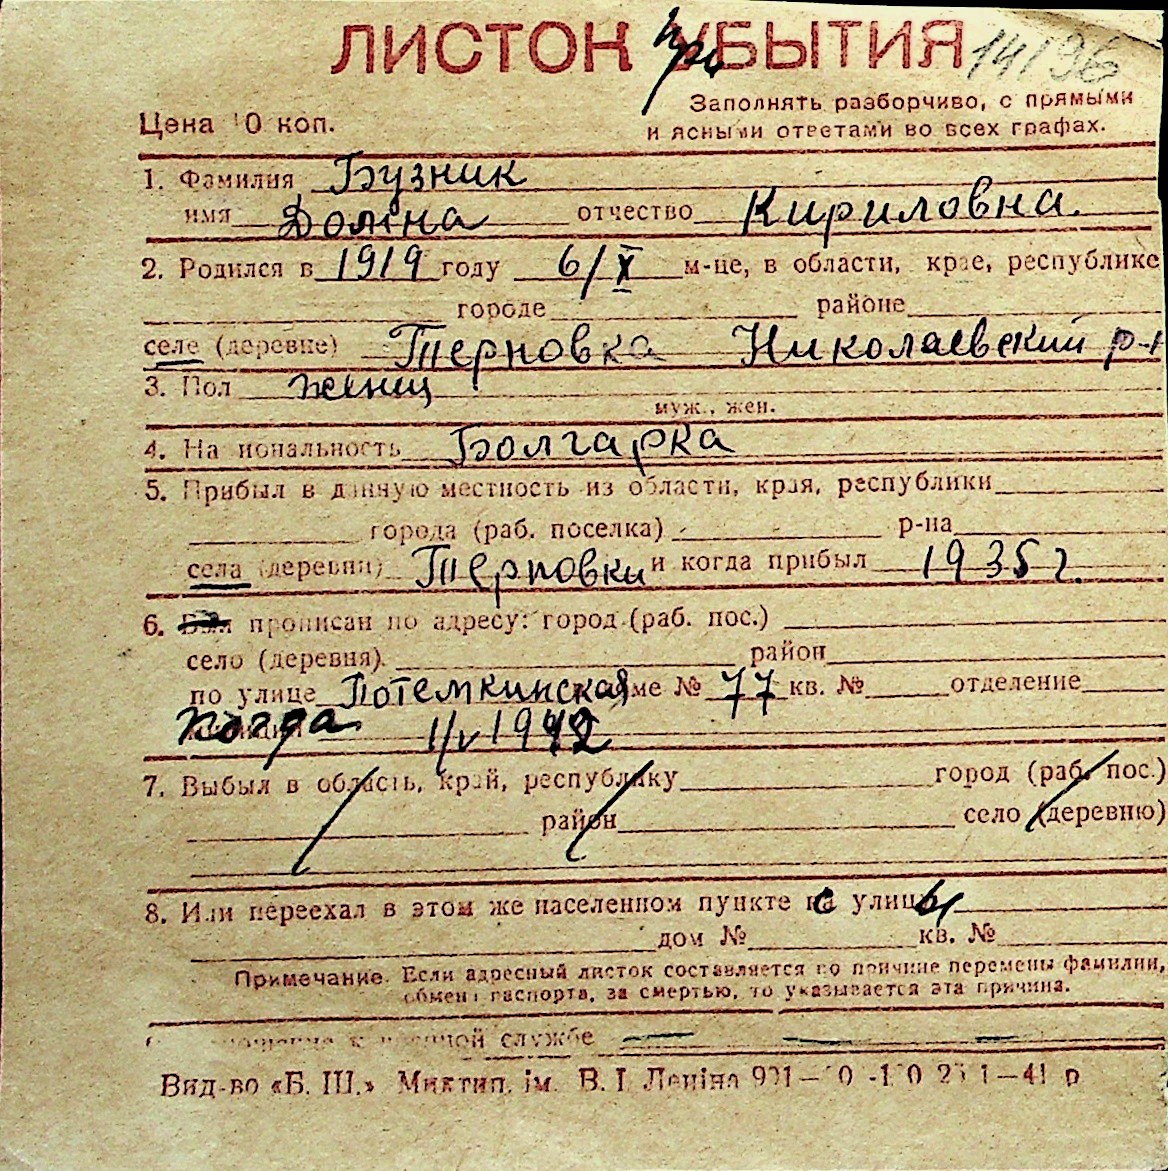 ЛИСТОК прибытия 14196
Цена 10 коп.
Заполнять разборчиво, с прямыми
и ясными ответами во всех графах.
1. Фамилия Бузник
имя Домна отчество Кириловна.
2. Родился в 1919 году 6/X м-це, в области, крае, республике
городе районе
селе (деревне) Терновка Николаевский р-н
3. Пол женщ
муж., жен.
4. Национальность Болгарка
5. Прибыл в данную местность из области, края, республики
города (раб. поселка) р-на
села (деревни) Терновки и когда прибыл 1935 г.
6. Был прописан по адресу: город (раб. пос.)
село (деревня) район
по улице Потемкинская доме № 77 кв. № отделение
милиции когда 1/V 1942
7. Выбыл в область, край, республику город (раб. пос.)
район село (деревню)
8. Или переехал в этом же населенном пункте с улицы
дом № кв. №
Примечание. Если адресный листок составляется по причине перемены фамилии,
обмена паспорта, за смертью, то указывается эта причина.
отношение к военной службе
Вид-во «Б. Ш.» Миктип. ім. В. І. Леніна